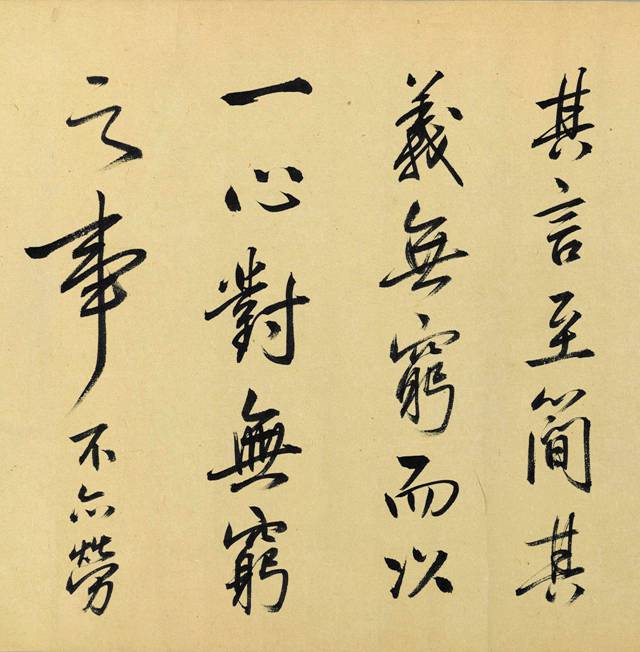 其言至簡其
義無窮而以
一心對無窮
之事不亦勞